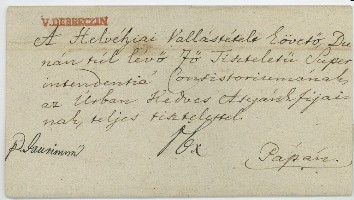 V. DEBRECZIN
A Helvetziai Vallástételt követő, Du
nán túl lévő Fő Tiszteletű Super
intendentzia Consistoriumának,
az Urban Kedves Atyánk fijai
nak, teljes tisztelettel.
Pápán.